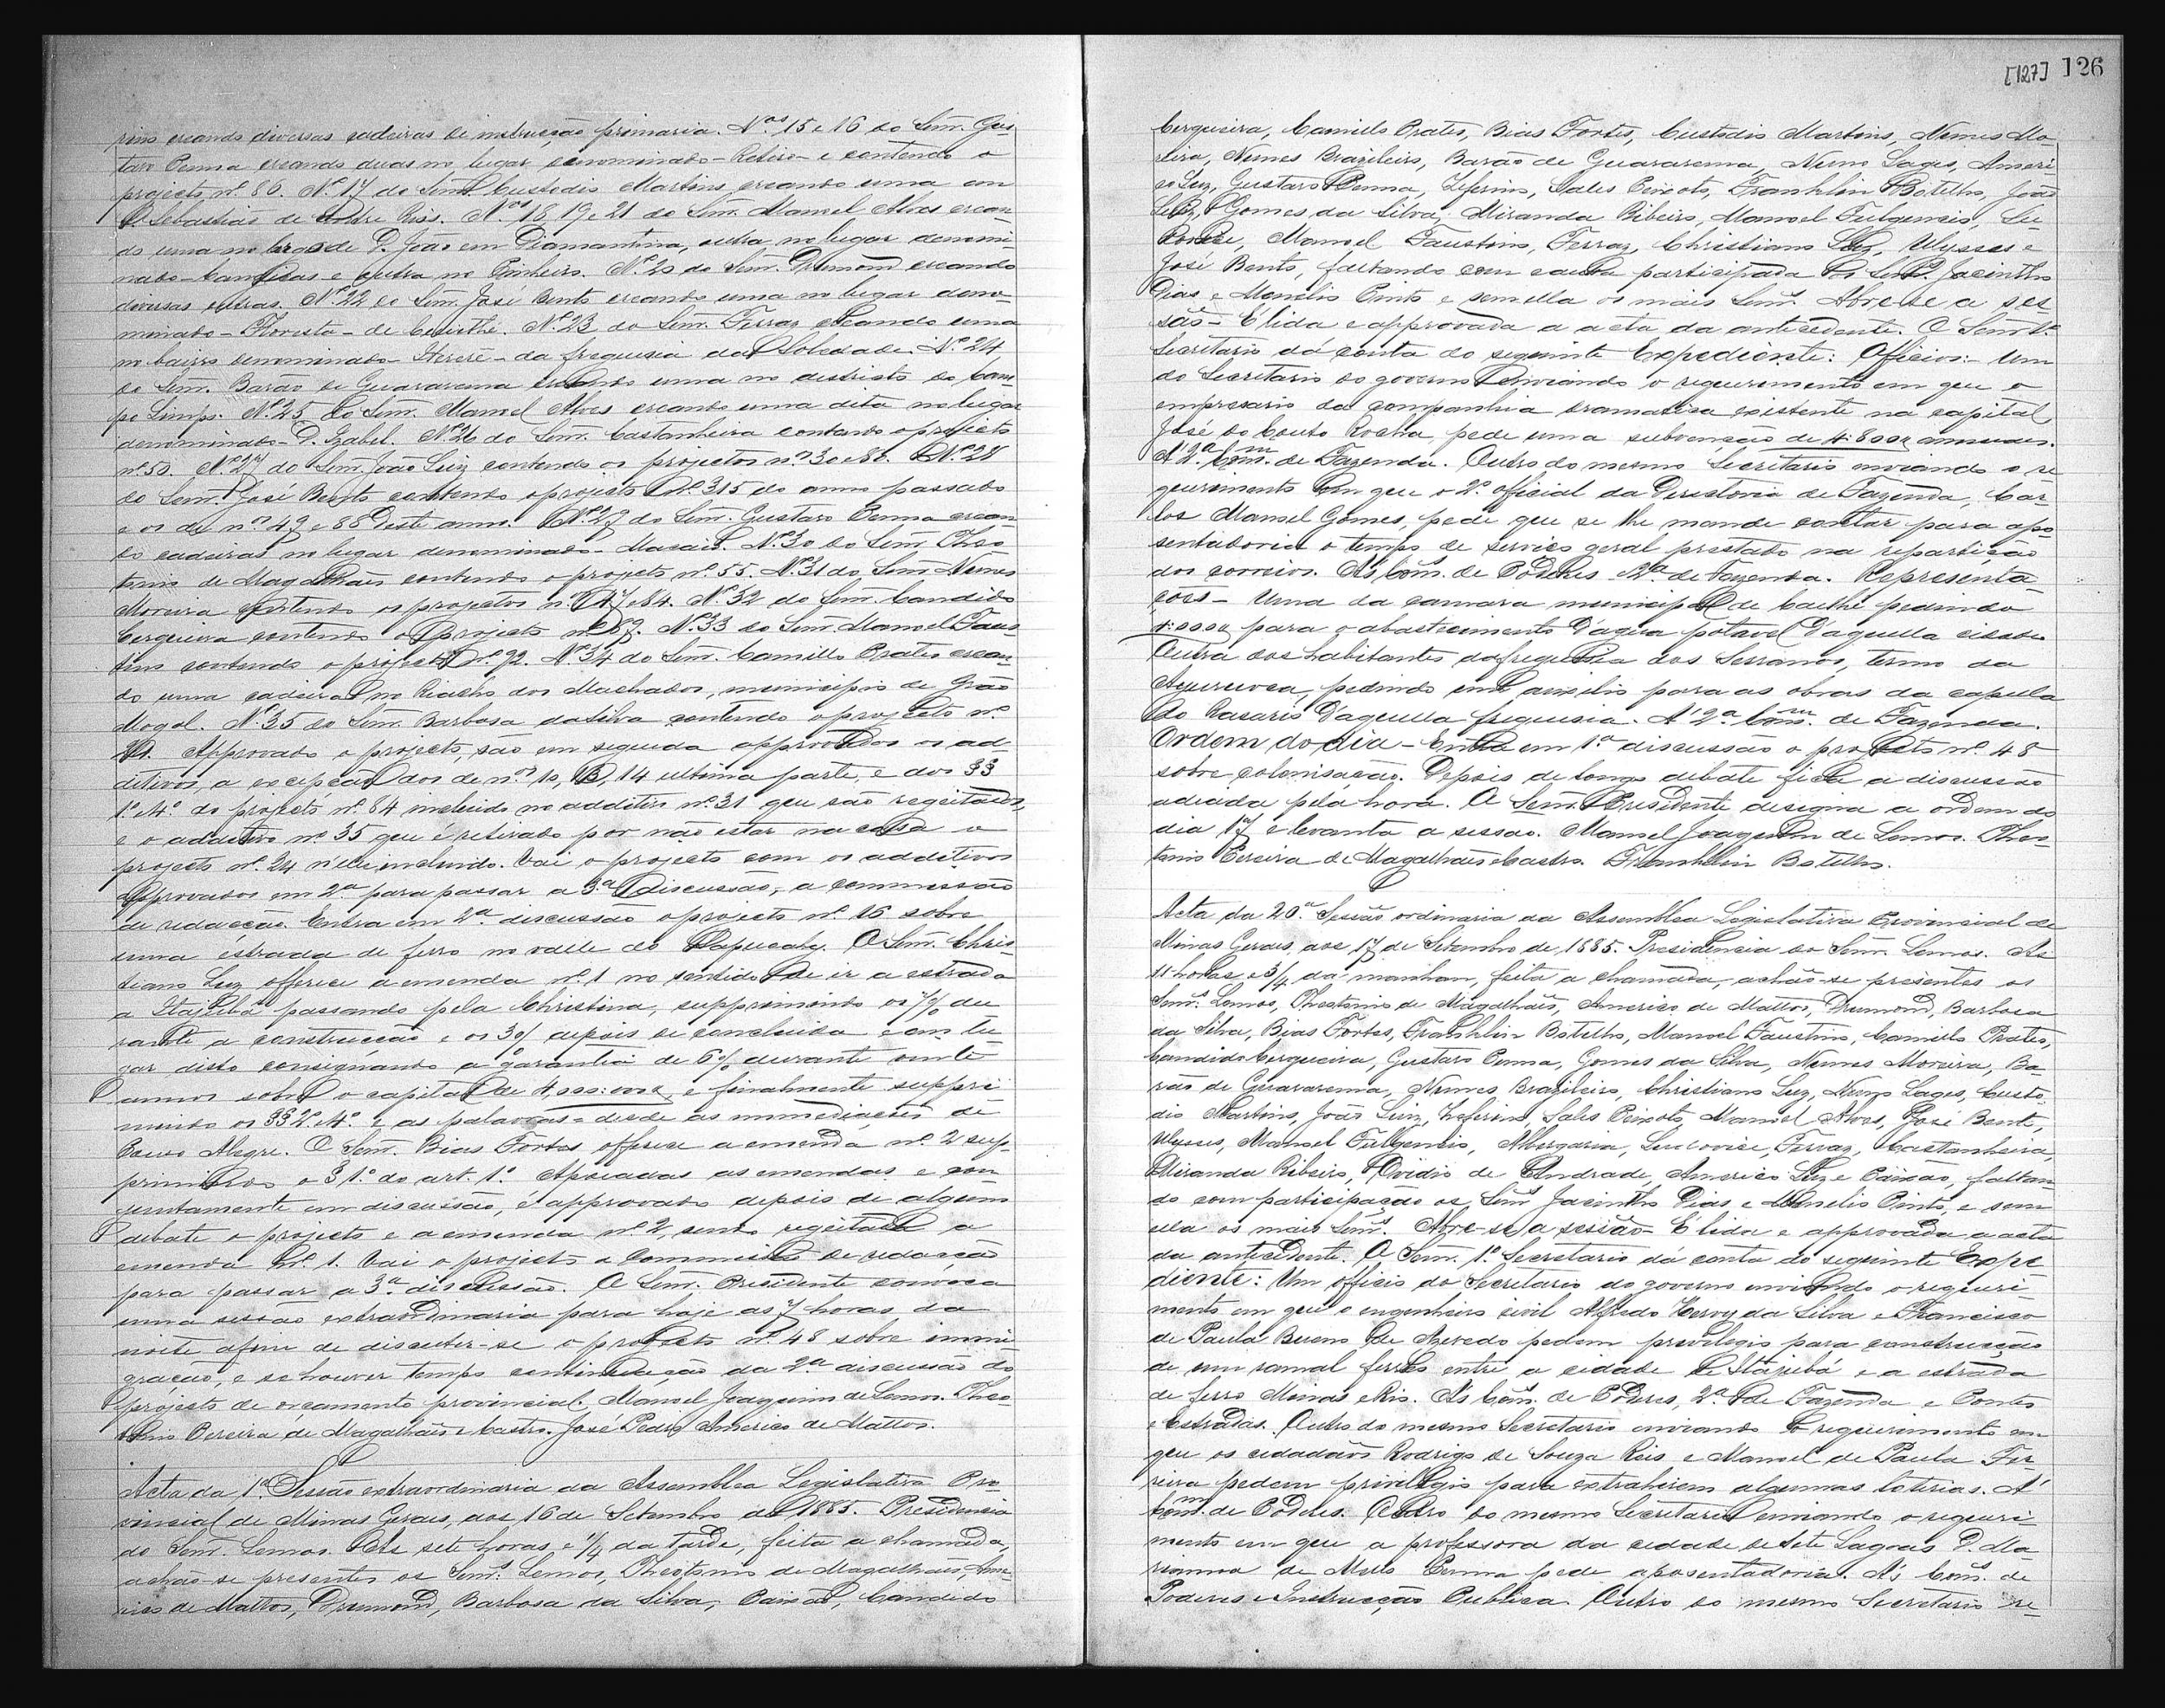 rino creando diversas cadeiras de instrucção primaria. Nos 15 e 16 do Senr. Gus-
tavo Penna creando duas no lugar denominado - Retiro - e contendo o
projecto nº 80. Nº 17 do Senr. Custodio Martins creando uma em
S. Sebastião de Entre Rios. Nos 18, 19 e 21 do Senr. Manoel Alves crean-
do uma no largo de D. João em Diamantina, outra, no lugar denomi-
nado - e outra no Pinheiro. Nº 20 do Senr. Drumond creando
diversas outras. Nº 22 do Senr. José Bento creando uma no lugar deno-
minado - Floresta - de Caethé. Nº 23 do Senr. Ferraz creando uma
no bairro denominado - Itererê - da freguesia da Soledade. Nº 24
do Senr. Barão de Guararema creando uma no districto do Cam-
po Limpo. Nº 25 do Senr. Manoel Alves creando uma dita no lugar
denominado - D. Izabel. Nº 26 do Senr. Castanheira contendo o projecto
nº 50. Nº 27 do Senr. João Luiz contendo os projectos nos 30 e 86. Nº 28
do Senr. José Bento contendo o projecto nº 315 do anno passado
e os de nos 49 e 88 deste anno. Nº 29 do Senr. Gustavo Penna crean-
do cadeiras no lugar denominado - Nº 30 do Senr. Theo-
tonio de Magalhães contendo o projecto nº 55. Nº 31 do Senr. Nunes
Moreira contendo os projectos nos 47 e 84. Nº 32 do Senr. Candido
Cerqueira contendo o projecto nº 89. Nº 33 do Senr. Manoel Faus-
tino contendo o projecto nº 92. Nº 34 do Senr. Camillo Prates crean-
do uma cadeira no Riacho dos Machados, municipio de Grão
Mogol. Nº 35 do Senr. Barbosa da Silva contendo o projecto nº
24. Approvado o projecto, são em seguida approvados os ad-
ditivos, a excepção dos de nos 10, 13, 14 ultima parte, e dos §§
1º e 4º do projecto nº 84 incluido no additivo nº 31 que são regeitados,
e o additivo nº 35 que é retirado por não estar na casa o
projecto nº 24 n'elle incluido. Vai o projecto com os additivos
approvados em 2ª para passar a 3ª discussão, a commissão
de redacção. Entra em 2ª discussão o projecto nº 16 sobre
uma estrada de ferro no valle do Sapucahy. O Senr. Chris-
tiano Luz offerece a emenda nº 1 no sentido de ir a estrada
a Itajubá passando pela Christina, supprimindo os 7% du-
rante a construcção e os 3% depois de concluida e em lu-
gar disto consignando a garantia de 6% durante vinte
annos sobre o capital de 4.000:000$, e finalmente suppri-
mindo os §§ 2º e 4º e as palavras - desde as immediações de
Pouso Alegre. O Senr. Bias Fortes offerece a emenda nº 2 sup-
primindo o § 1º do art. 1º. Apoiadas as emendas e con-
junctamente em discussão, é approvado depois de algum
debate o projecto e a emenda nº 2, sendo regeitada a
emenda nº 1. Vai o projecto a commissão de redacção
para passar a 3ª discussão. O Senr. Presidente convoca
uma sessão extraordinaria para hoje as 7 horas da
noite afim de discutir-se o projecto nº 48 sobre immi-
gração, e se houver tempo continuação da 2ª discussão do
projecto de orçamento provincial. Manoel Joaquim de Lemos. Theo-
tonio Pereira de Magalhães e Castro. José Pedro Americo de Mattos.
Acta da 1ª Sessão extraordinaria da Assemblea Legislativa Pro-
vincial de Minas Geraes, aos 16 de Setembro de 1885. Presidencia
do Senr. Lemos. As sete horas e 1/4 da tarde, feita a chamada,
achão-se presentes os Senrs. Lemos, Theotonio de Magalhães, Ame-
rico de Mattos, Drumond, Barbosa da Silva, Paixão, Candido
[127] 126
Cerqueira, Camillo Prates, Bias Fortes, Custodio Martins, Nunes Mo-
reira, Nunes Brazileiro, Barão de Guararema, Nuno Lages, Ameri-
co Luz, Gustavo Penna, Zeferino, Sales Peixoto, Franklin Botelho, João
Luiz, Gomes da Silva, Miranda Ribeiro, Manoel Fulgencio, Lu-
dovice, Manoel Faustino, Ferraz, Christiano Luz, Ulysses e
José Bento, faltando com causa participada os Senrs. Jacintho
Dias e Manelio Pinto e sem ella os mais Senrs. Abre-se a ses-
são - É lida e approvada a acta da antecedente. O Senr. 1º
Secretario dá conta do seguinte Expediente: Officios: - Um
do Secretario do governo enviando o requerimento em que o
empresario da companhia dramatica existente na capital
José do Couto Rocha, pede uma subvenção de 4:800$ annuaes.
A' 2ª Comm. de Fazenda. Outro do mesmo Secretario enviando o re-
querimento em que o 2º official da Directoria de Fazenda, Car-
los Manoel Gomes, pede que se lhe mande contar para apo-
sentadoria o tempo de serviço geral prestado na repartição
dos correios. As Comms. de Poderes e 2ª de Fazenda. Representa-
ções - Uma da camara municipal de Caethé pedindo
4:000$ para o abastecimento d'agua potavel d'aquella cidade.
Outra dos habitantes da freguesia dos Serranos, termo da
Ayuruoca, pedindo um auxilio para as obras da capella
do Rosario d'aquella freguesia. A' 2ª Comm. de Fazenda.
Ordem do dia - Entra em 1ª discussão o projecto nº 48
sobre colonisação. Depois de longo debate fica a discussão
adiada pela hora. O Senr. Presidente designa a ordem do
dia 17 e levanta a sessão. Manoel Joaquim de Lemos. Theo-
tonio Pereira de Magalhães e Castro. Franklin Botelho.
Acta da 20ª Sessão ordinaria da Assemblea Legislativa Provincial de
Minas Geraes, aos 17 de Setembro de 1885. Presidencia do Senr. Lemos. As
11 horas e 3/4 da manhan, feita a chamada, achão-se presentes os
Senrs. Lemos, Theotonio de Magalhães, Americo de Mattos, Drumond, Barbosa
da Silva, Bias Fortes, Franklin Botelho, Manoel Faustino, Camillo Prates,
Candido Cerqueira, Gustavo Penna, Gomes da Silva, Nunes Moreira, Ba-
rão de Guararema, Nunes Brazileiro, Christiano Luz, Nuno Lages, Custo-
dio Martins, João Luiz, Zeferino, Sales Peixoto, Manoel Alves, José Bento,
Ulysses, Manoel Fulgencio, Albergaria, Ludovice, Ferraz, Castanheira,
Miranda Ribeiro, Ovidio de Andrade, Americo Luz e Paixão, faltan-
do com participação os Senrs. Jacintho Dias e Manelio Pinto, e sem
ella os mais Senrs. Abre-se a sessão - É lida e approvada a acta
da antecedente. O Senr. 1º Secretario dá conta do seguinte Expe-
diente: Um officio do Secretario do governo enviando o requeri-
mento em que o engenheiro civil Alfredo da Silva e Francisco
de Paula Bueno de Azevedo pedem privilegio para construcção
de um ramal ferreo entre a cidade de Itajubá e a estrada
de ferro Minas e Rio. As Comms. de Poderes, 2ª de Fazenda e Pontes
e Estradas. Outro do mesmo Secretario enviando o requerimento em
que os cidadãos Rodrigo de Souza Reis e Manoel de Paula Fer-
reira pedem privilegio para extrahirem algumas loterias. A'
Comm. de Poderes. Outro do mesmo Secretario enviando o requeri-
mento em que a professora da cidade de Sete Lagoas D. Ma-
rianna de Mello Penna pede aposentadoria. As Comms. de
Poderes e Instrucção Publica. Outro do mesmo Secretario re-